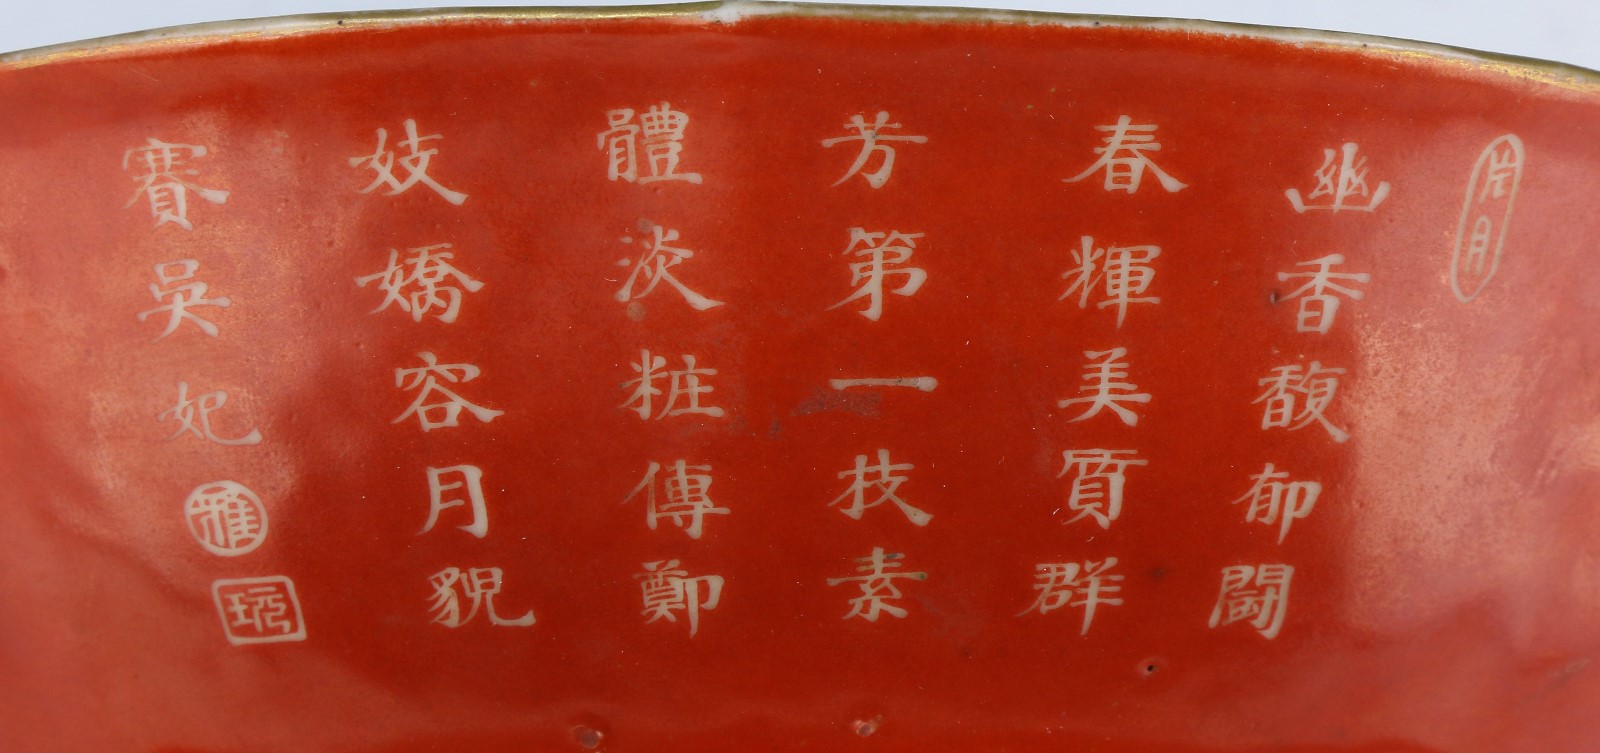 片月
幽香馥郁闘
春輝美質群
芳第一技素
體淡粧傳鄭
妓嬌容月貌
賽吳妃
雅
玩